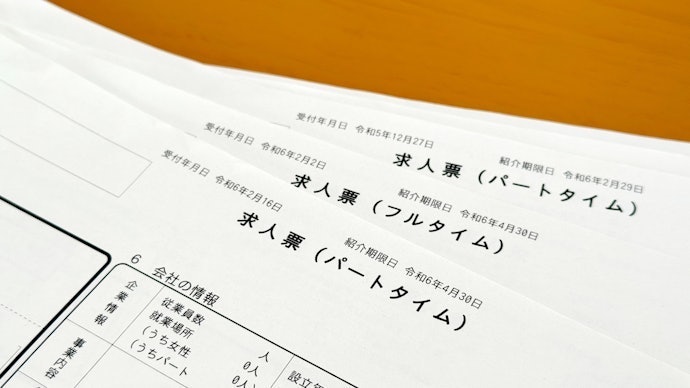 受付年月日 令和5年12月27日
紹介期限日 令和6年2月29日
求人票（パートタイム）
受付年月日 令和6年2月2日
紹介期限日 令和6年4月30日
求人票（フルタイム）
受付年月日 令和6年2月16日
紹介期限日 令和6年4月30日
求人票（パートタイム）
6 会社の情報
企業情報
従業員数 人
就業場所 0人
（うち女性 0人）
（うちパート
設立年
事業内容